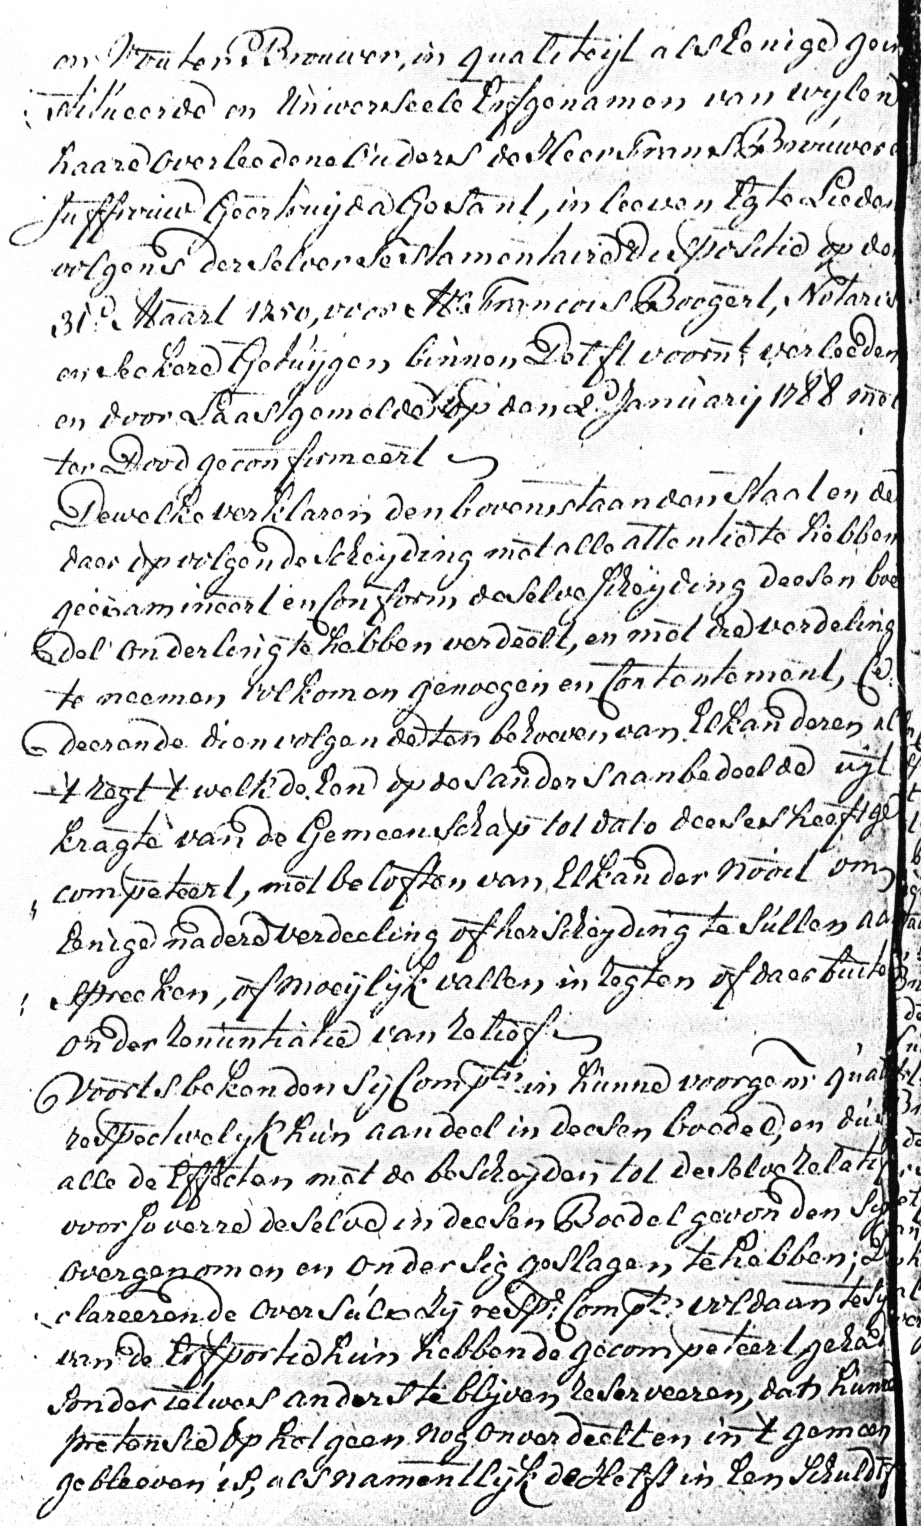 en Wouter Brouwer, in qualiteijt als Eenige gein
stitueerde en Universeele Erfgenamen van wylen
haare overleedene Ouders de Heer Frans Brouwer e
Juffrouw Geertruijda Gesant, in leeven Egte Lieden
volgens derselver Testamentaire dispositie op den
31e. Maart 1750, voor Mr. Francois Boogert, Notaris
en seekere Getuijgen binnen Delft voorn.t verleeden
en door Laastgemelde op den 2e. Januarij 1788 met
ter Dood geconfirmeert
Dewelke verklaren den bovenstaanden Staat en de
daar opvolgende scheijding met alle attentie te hebben
geëxamineert en Conform deselve scheijding deesen boe
del onderling te hebben verdeelt, en met die verdeling
te neemen volkomen genoegen en Contentement, Ce
deerende dienvolgende ten behoeven van Elkanderen al
't regt 't welk de Een op des anders aanbedeelde uijt
kragte van de Gemeenschap tot dato deeses heeft ge
competeert, met beloften van Elkander nooit om
Eenige nadere verdeeling of herscheijding te sullen aan
spreeken, of moeijlijk vallen in regten of daar buiten
onder renuntiatie van relief
Voorts bekenden sij Compten. in hunne voorgem. qualt.
respectivelijk hun aandeel in deesen boedel, en dus
alle de Effecten met de bescheyden tot deselve relatif
voor so verre deselve in deesen Boedel gevonden sijn
overgenomen en onder sig geslagen te hebben; De
clareerende oversulx zij resp. Compten. voldaan te sijn
van de Erfportie hun hebbende gecompeteert gehad
sonder ietwes anders te blijven reserveeren, dan hunne
pretensie op het geen nog onverdeelt en in 't gemeen
gebleeven is, als namentlijk de Helft in een schuldt